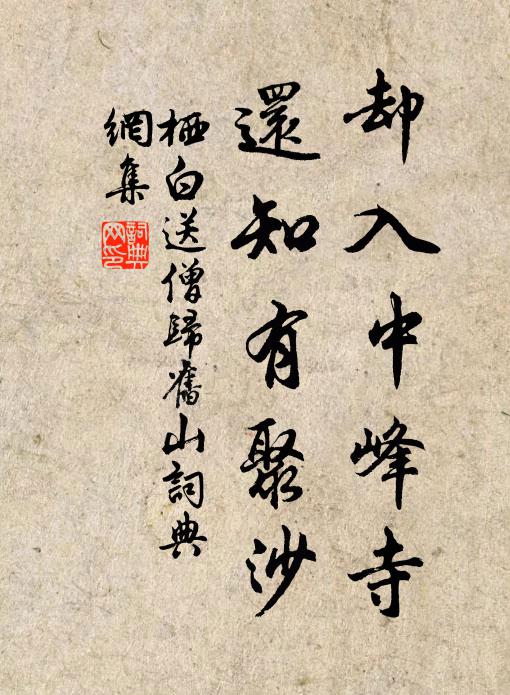 却入中峰寺
還知有聚沙
栖白送僧歸舊山詞典
網集
詞典
网印